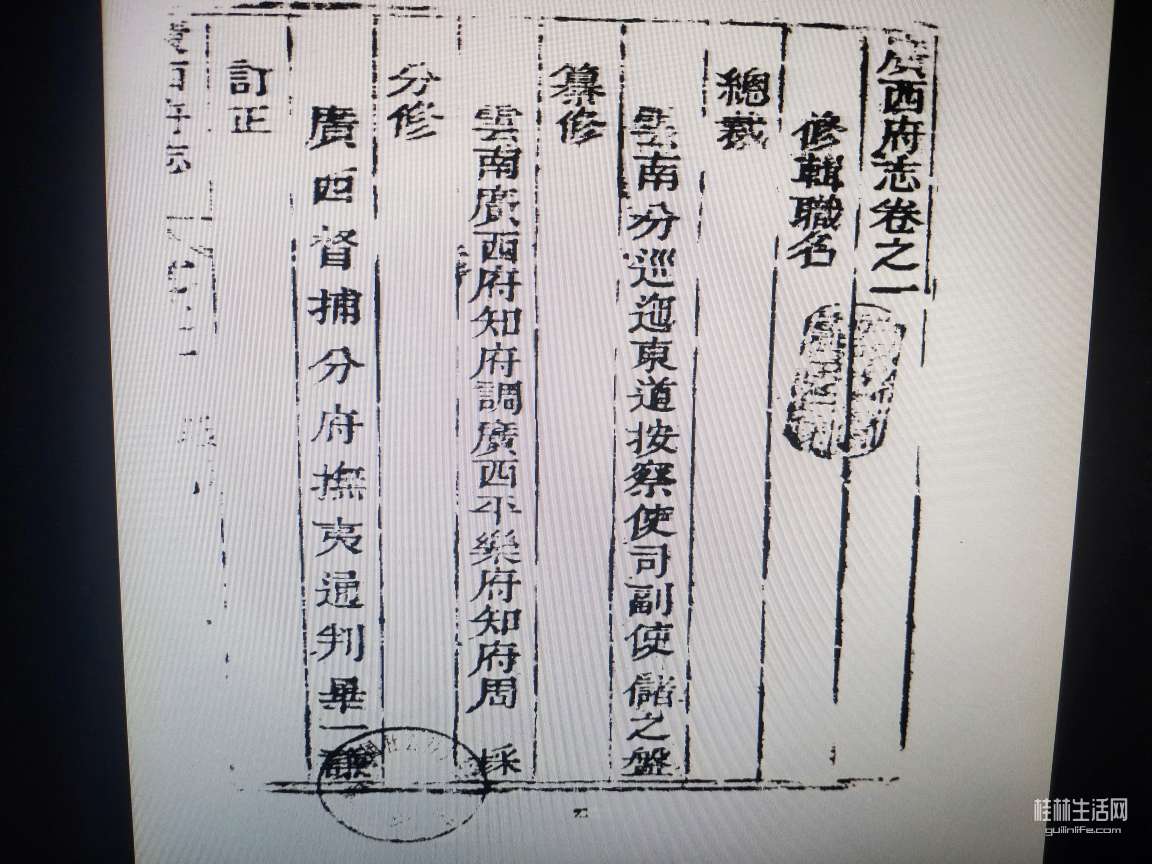 廣西府志卷之一
修輯職名
總裁
雲南分巡迤東道按察使司副使儲之盤
纂修
雲南廣西府知府調廣西平樂府知府周 埰
分修
廣西督捕分府撫夷通判畢一謙
訂正
桂林生活网
guilinlife.com